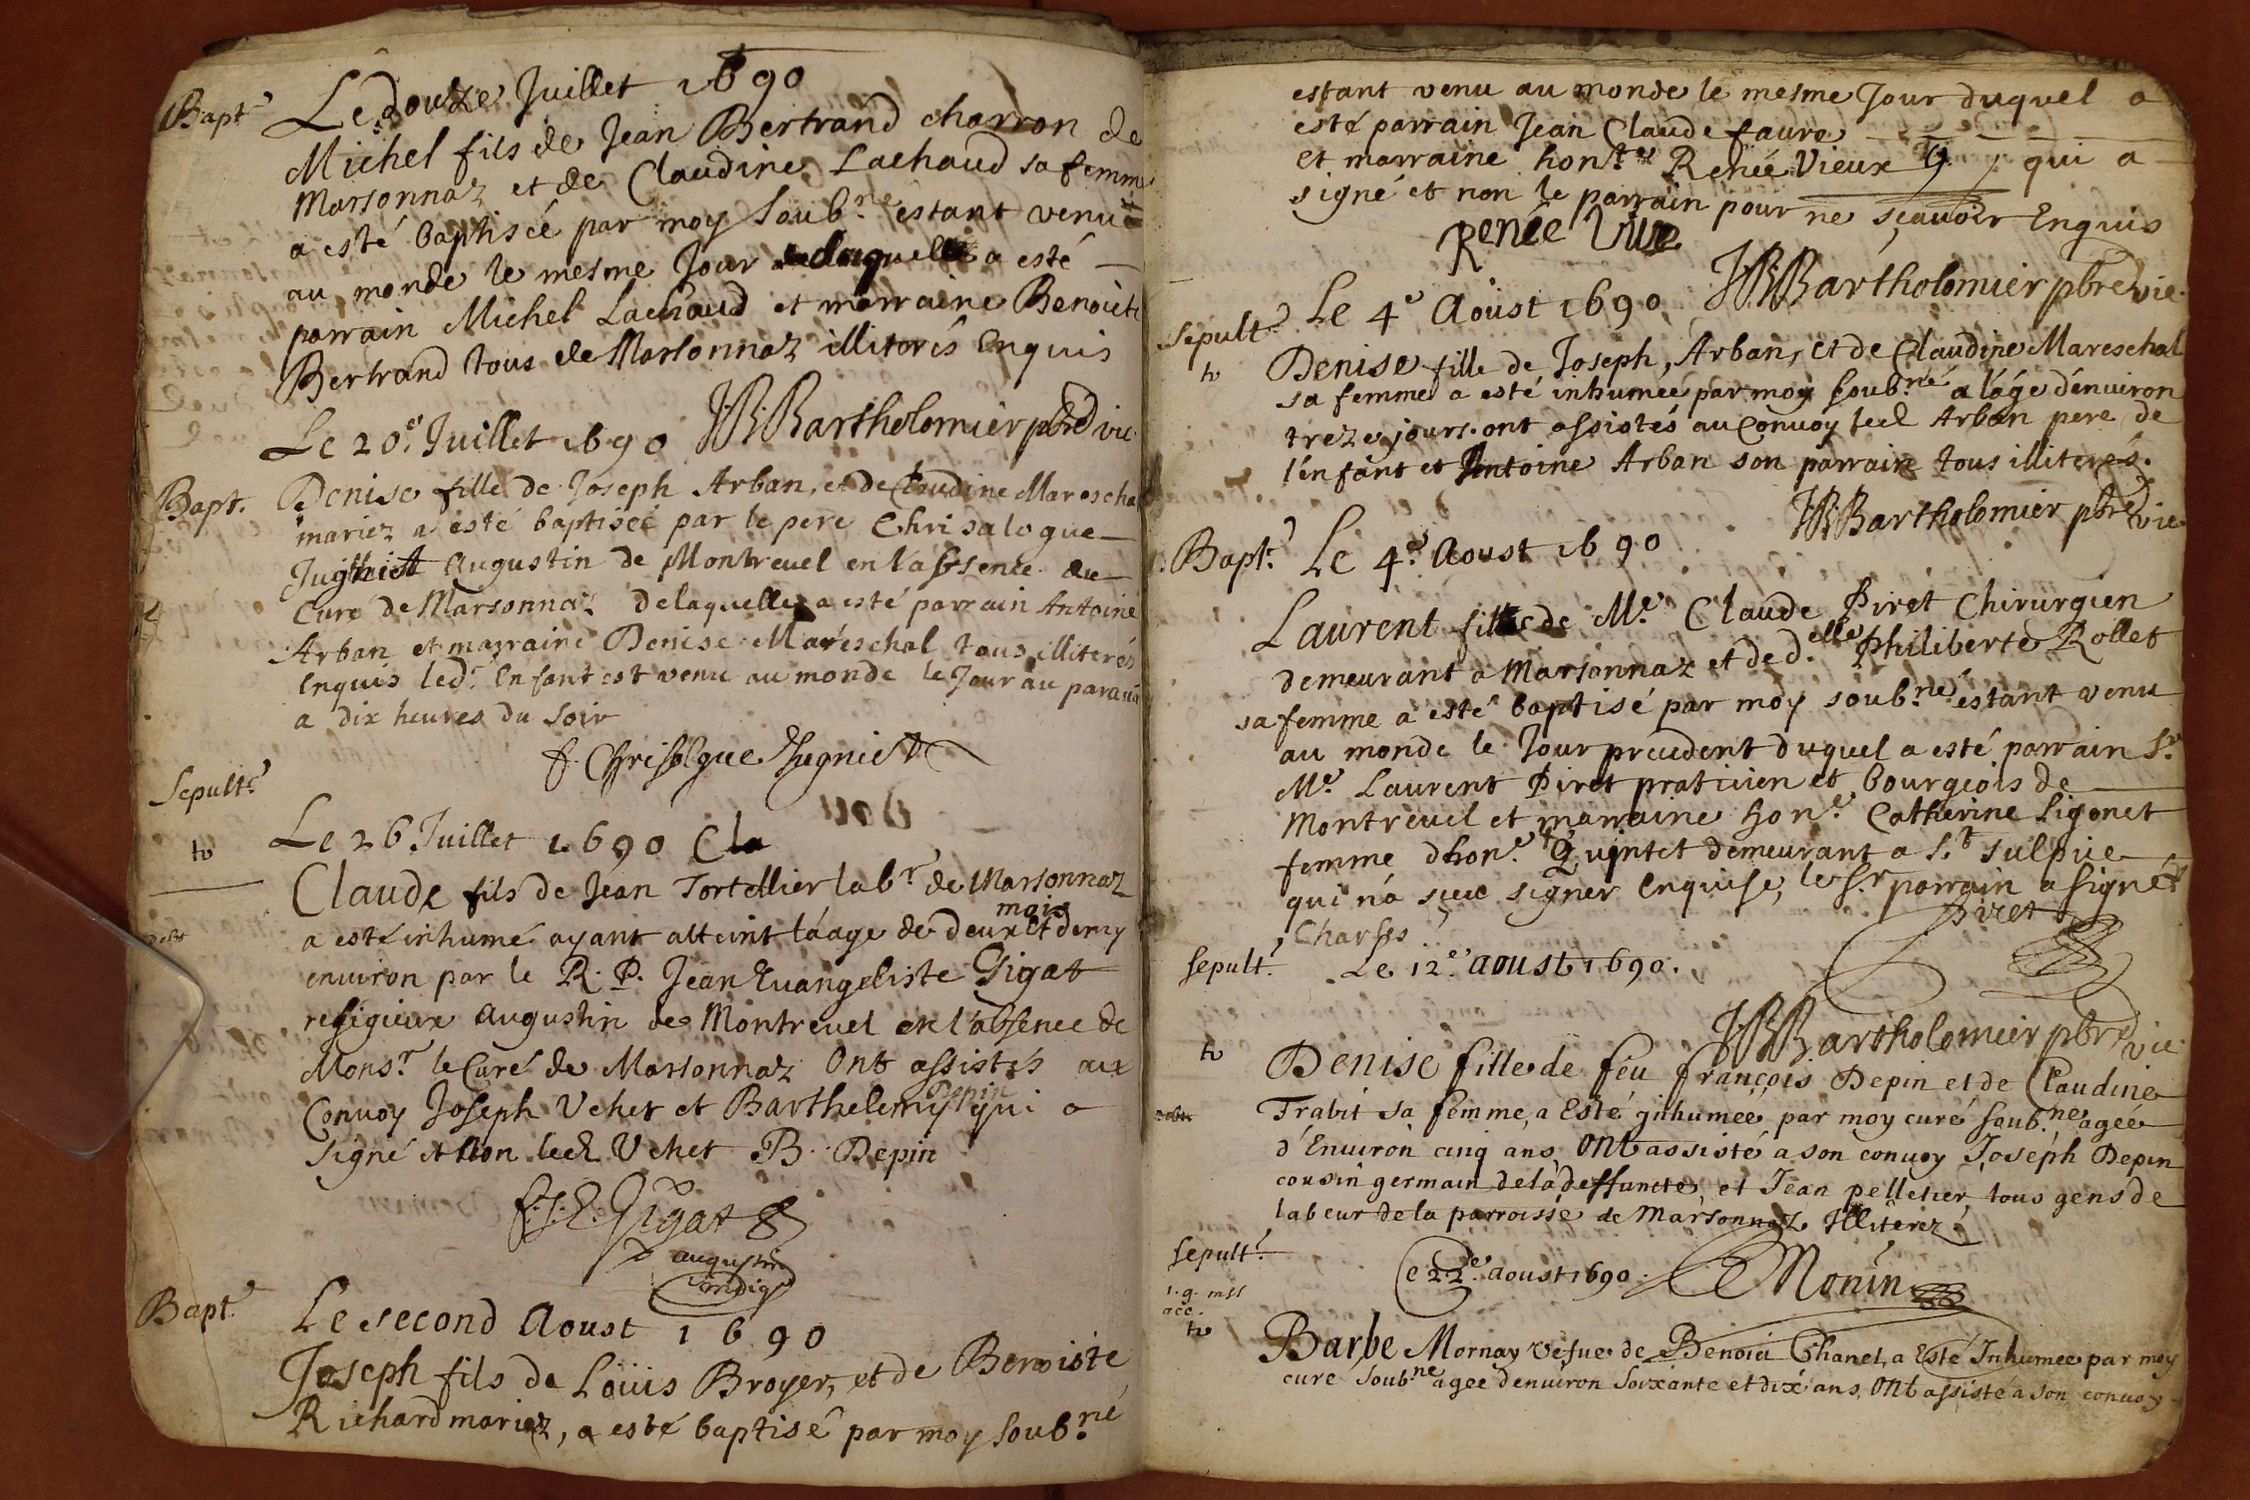 Bapt.
Le douze Juillet 1690
Michel fils de Jean Bertrand charron de
Marsonnaz et de Claudine Lachaud sa femme
a esté baptisée par moy soub.né estant venu
au monde le mesme Jour laquelle a esté
parrain Michel Lachaud et marraine Benoite
Bertrand tous de Marsonnaz illiterés Enquis
JB Bartholomier pbre vic.
Le 20.e Juillet 1690
Bapt.
Denise fille de Joseph Arban, et de Claudine Mareschal
mariez a esté baptisée par le pere Chrisalogue
Jugniet Augustin de Montreuel en l'absence du
Curé de Marsonnaz delaquelle a esté parrain Antoine
Arban et marraine Denise Mareschal tous illiterés
Enquis led. Enfant est venu au monde le Jour au parauant
a dix heures du soir
f. Chrisologue Jugniet
Sepult.
Le 26 Juillet 1690 Cla
to
Claude fils de Jean Tortellier lab.r de Marsonnaz
mois
a esté inhumé ayant atteint láage de deux et demy
enuiron par le R. P. Jean Euangeliste Gigat
religieux Augustin de Montreuel en l'absence de
Mons.r le Curé de Marsonnaz Ont assistés aux
Depin
Conuoy Joseph Uchet et Barthelemy qui a
signé et non led. Uchet B. Depin
f. J. E. Gigat
augustin
indig
Bapt.
Le second Aoust 1690
Joseph fils de Loüis Broyer, et de Benoiste
Richard mariez, a esté baptisé par moy soub.né
estant venu au monde le mesme Jour duquel a
esté parrain Jean Claude faure
et marraine hon.te Renée Vieux qui a
signé et non le parrain pour ne sçauoir Enquis
Renée Viue
JB Bartholomier pbre vic.
Sepult. Le 4.e Aoust 1690
to
Denise fille de Joseph, Arban, et de Claudine Mareschal
sa femme a esté inhumée par moy soub.né a láge d'enuiron
treze jours. ont assistés au Conuoy led Arban pere de
l'enfant et Antoine Arban son parrain tous illiterés.
JB Bartholomier pbre vic.
Bapt. Le 4.e Aoust 1690
Laurent fils de M.e Claude Piret Chirurgien
demeurant a Marsonnaz et de d.elle Philiberte Rollet
sa femme a esté baptisé par moy soub.né estant venu
au monde le Jour precedent duquel a esté parrain S.r
M.e Laurent Piret praticien et bourgeois de
Montreuel et marraine hon.e Catherine Sigonet
femme dhon.e Quintet demeurant a S.t sulpice
qui n'a sceu signer Enquise, le S.r parrain a signé
Charles
Piret
Sepult. Le 12.e aoust 1690.
JB Bartholomier pbre vic.
to
Denise fille de feu françois Depin et de Claudine
Trabit sa femme, a Esté inhumée par moy curé soub.né agée
d'Enuiron cinq ans, Ont assisté a son conuoy Joseph Depin
cousin germain de la deffuncte, et Jean pelletier tous gens de
labeur de la parroisse de Marsonnaz Illiterez
Monin
Sepult.
Ce 22.e aoust 1690
to
Barbe Mornay Vefue de Benoict Chanel, a Esté Inhumee par moy
curé soub.né agee denuiron soixante et dix ans, Ont assisté a son conuoy